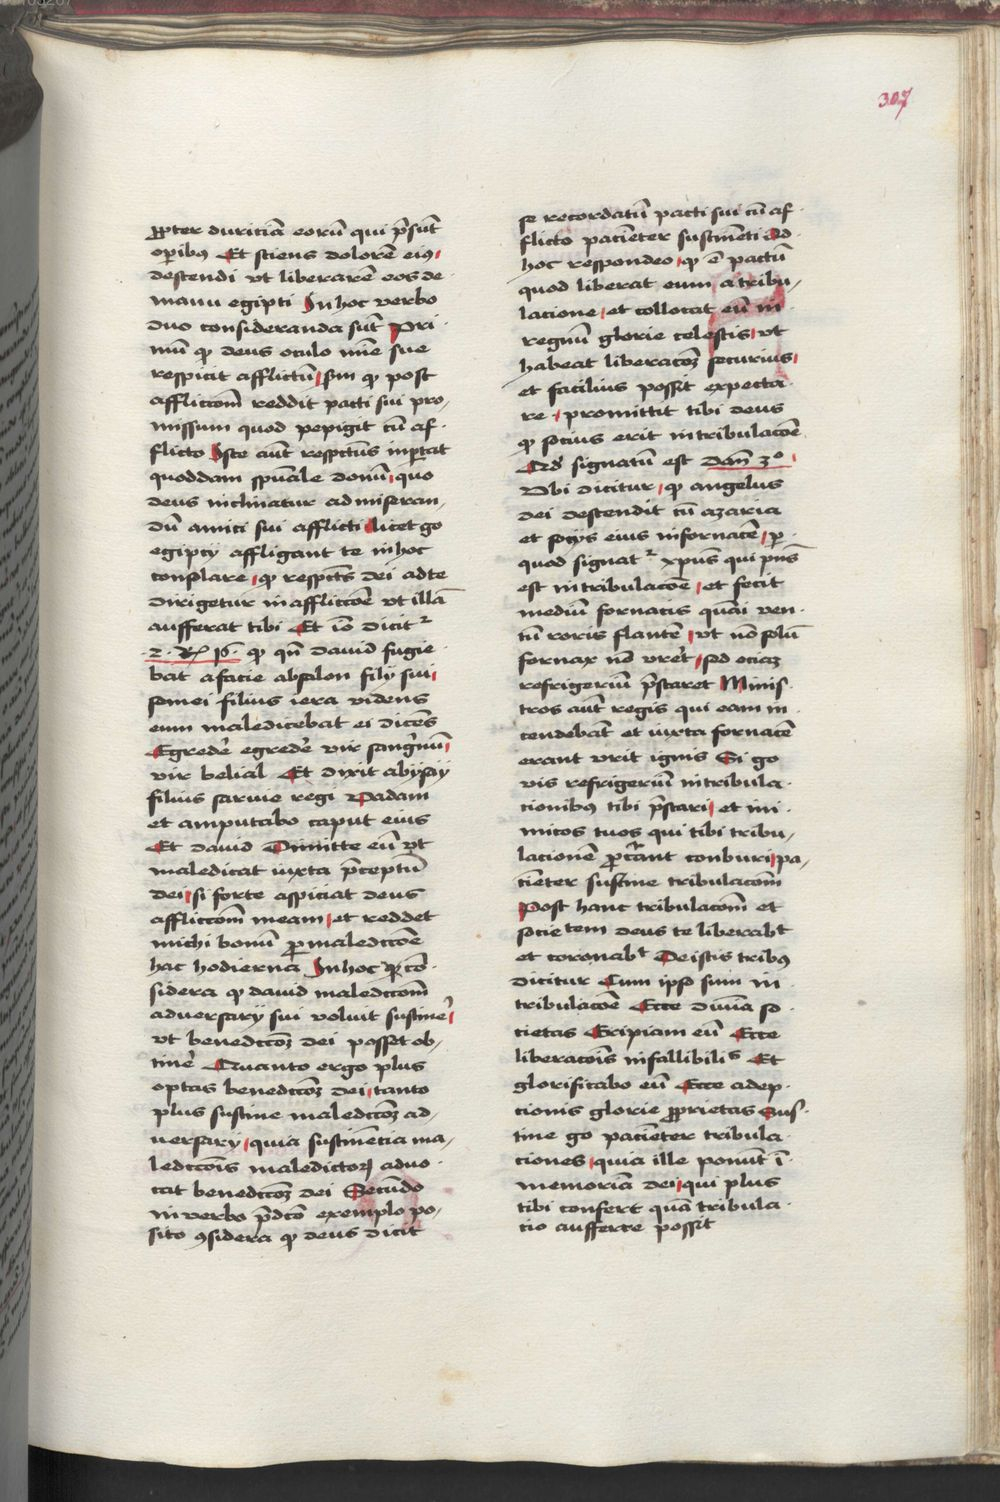 307
ꝓpter duriciā eorū qui p̄sūt
operibꝰ Et sciens dolorē eiꝰ
descendi vt liberarē eos de
manu egipti In hoc verbo
duo consideranda sūt Pri
mū ꝙ deus oculo mīe sue
respicit afflictū sm̄ ꝙ post
affliccōm reddit pacti sui pro
missum quod pepigit cū af
flicto Iste aūt respctūs inp̄tat
quoddam spūale donū quo
deus inclinatur ad miseran
dū amici sui afflicti licet go
egipcij affligant te in hoc
consolare ꝙ respctūs dei ad te
dirigetur in affliccōe vt illā
aufferat tibi Et iō dicitr
2 Rꝫ 16 ꝙ qn̄ dauid fugie
bat a facie absalon filij sui
semei filius iera videns
eum maledicebat ei dicēs
Egredē egredē vir sangwinū
vir belial Et dixit abysay
filius saruie regi Vadam
et amputabo caput eius
Et dauid Dimitte eū vt
maledicat iuxta p̄ceptū
dei si forte aspiciat deus
affliccōm meam et reddet
michi bonū ꝑ maledccōe
hac hodierna In hoc ꝙ cō
sidera ꝙ dauid maledccōm
aduersarij sui voluit sustinē
vt benedccōꝫ dei posset ob
tinē Quanto ergo plus
optas benedccōꝫ dei tanto
plus sustine maledccōꝫ ad
uersarij quia sustinēcia ma
ledccōis maledictoꝝ aduo
cat benedccōꝫ dei Secūdo
in verbo p̄dcō exemplo po
sito ꝯsidera ꝙ deus dicit
se recordatū pacti sui cū af
flicto pacīeter sustinēti Ad
hoc respondeo ꝙ ē pactū
quod liberat eum a tribu
lacione et collocat eū in
regnū glorie celestis vt
habeat liberacōꝫ securius
et facilius possit expecta
re promittit tibi deus
ꝙ socius erit in tribulacōe
Qd̄ signatū est Dan̄ 3º
Vbi dicitur ꝙ angelus
dei descendit cū azaria
et socijs eius in fornacē ꝑ
quod signatr xpūs qui pn̄s
est in tribulacōe et fecit
mediū fornacis quāi ven
tū roris flantē vt nō solū
fornax nō vrēt sed eciaꝫ
refrigeriū p̄staret Minis
tros aūt regis qui eam in
cendebāt et iuxta fornacē
erant vrit ignis Si go
vis refrigeriū in tribula
cionibꝰ tibi p̄stari et ini
micos tuos qui tibi tribu
lacionē ꝓcurant conburi pa
cīeter sustine tribulacōm
Post hanc tribulacōm et
socie tem deus te liberabt
et coronabt De istis tribꝰ
dicitur Cum ipso sum in
tribulacōe Ecce diuīa so
cietas Eripiam eū Ecce
liberacōis infallibilis Et
glorificabo eū Ecce adep
cionis glorie ꝓprietas Sus
tine go pacīeter tribula
ciones quia ille ponūt ī
memoriā dei qui plus
tibi conferet quā tribula
cio aufferre possit